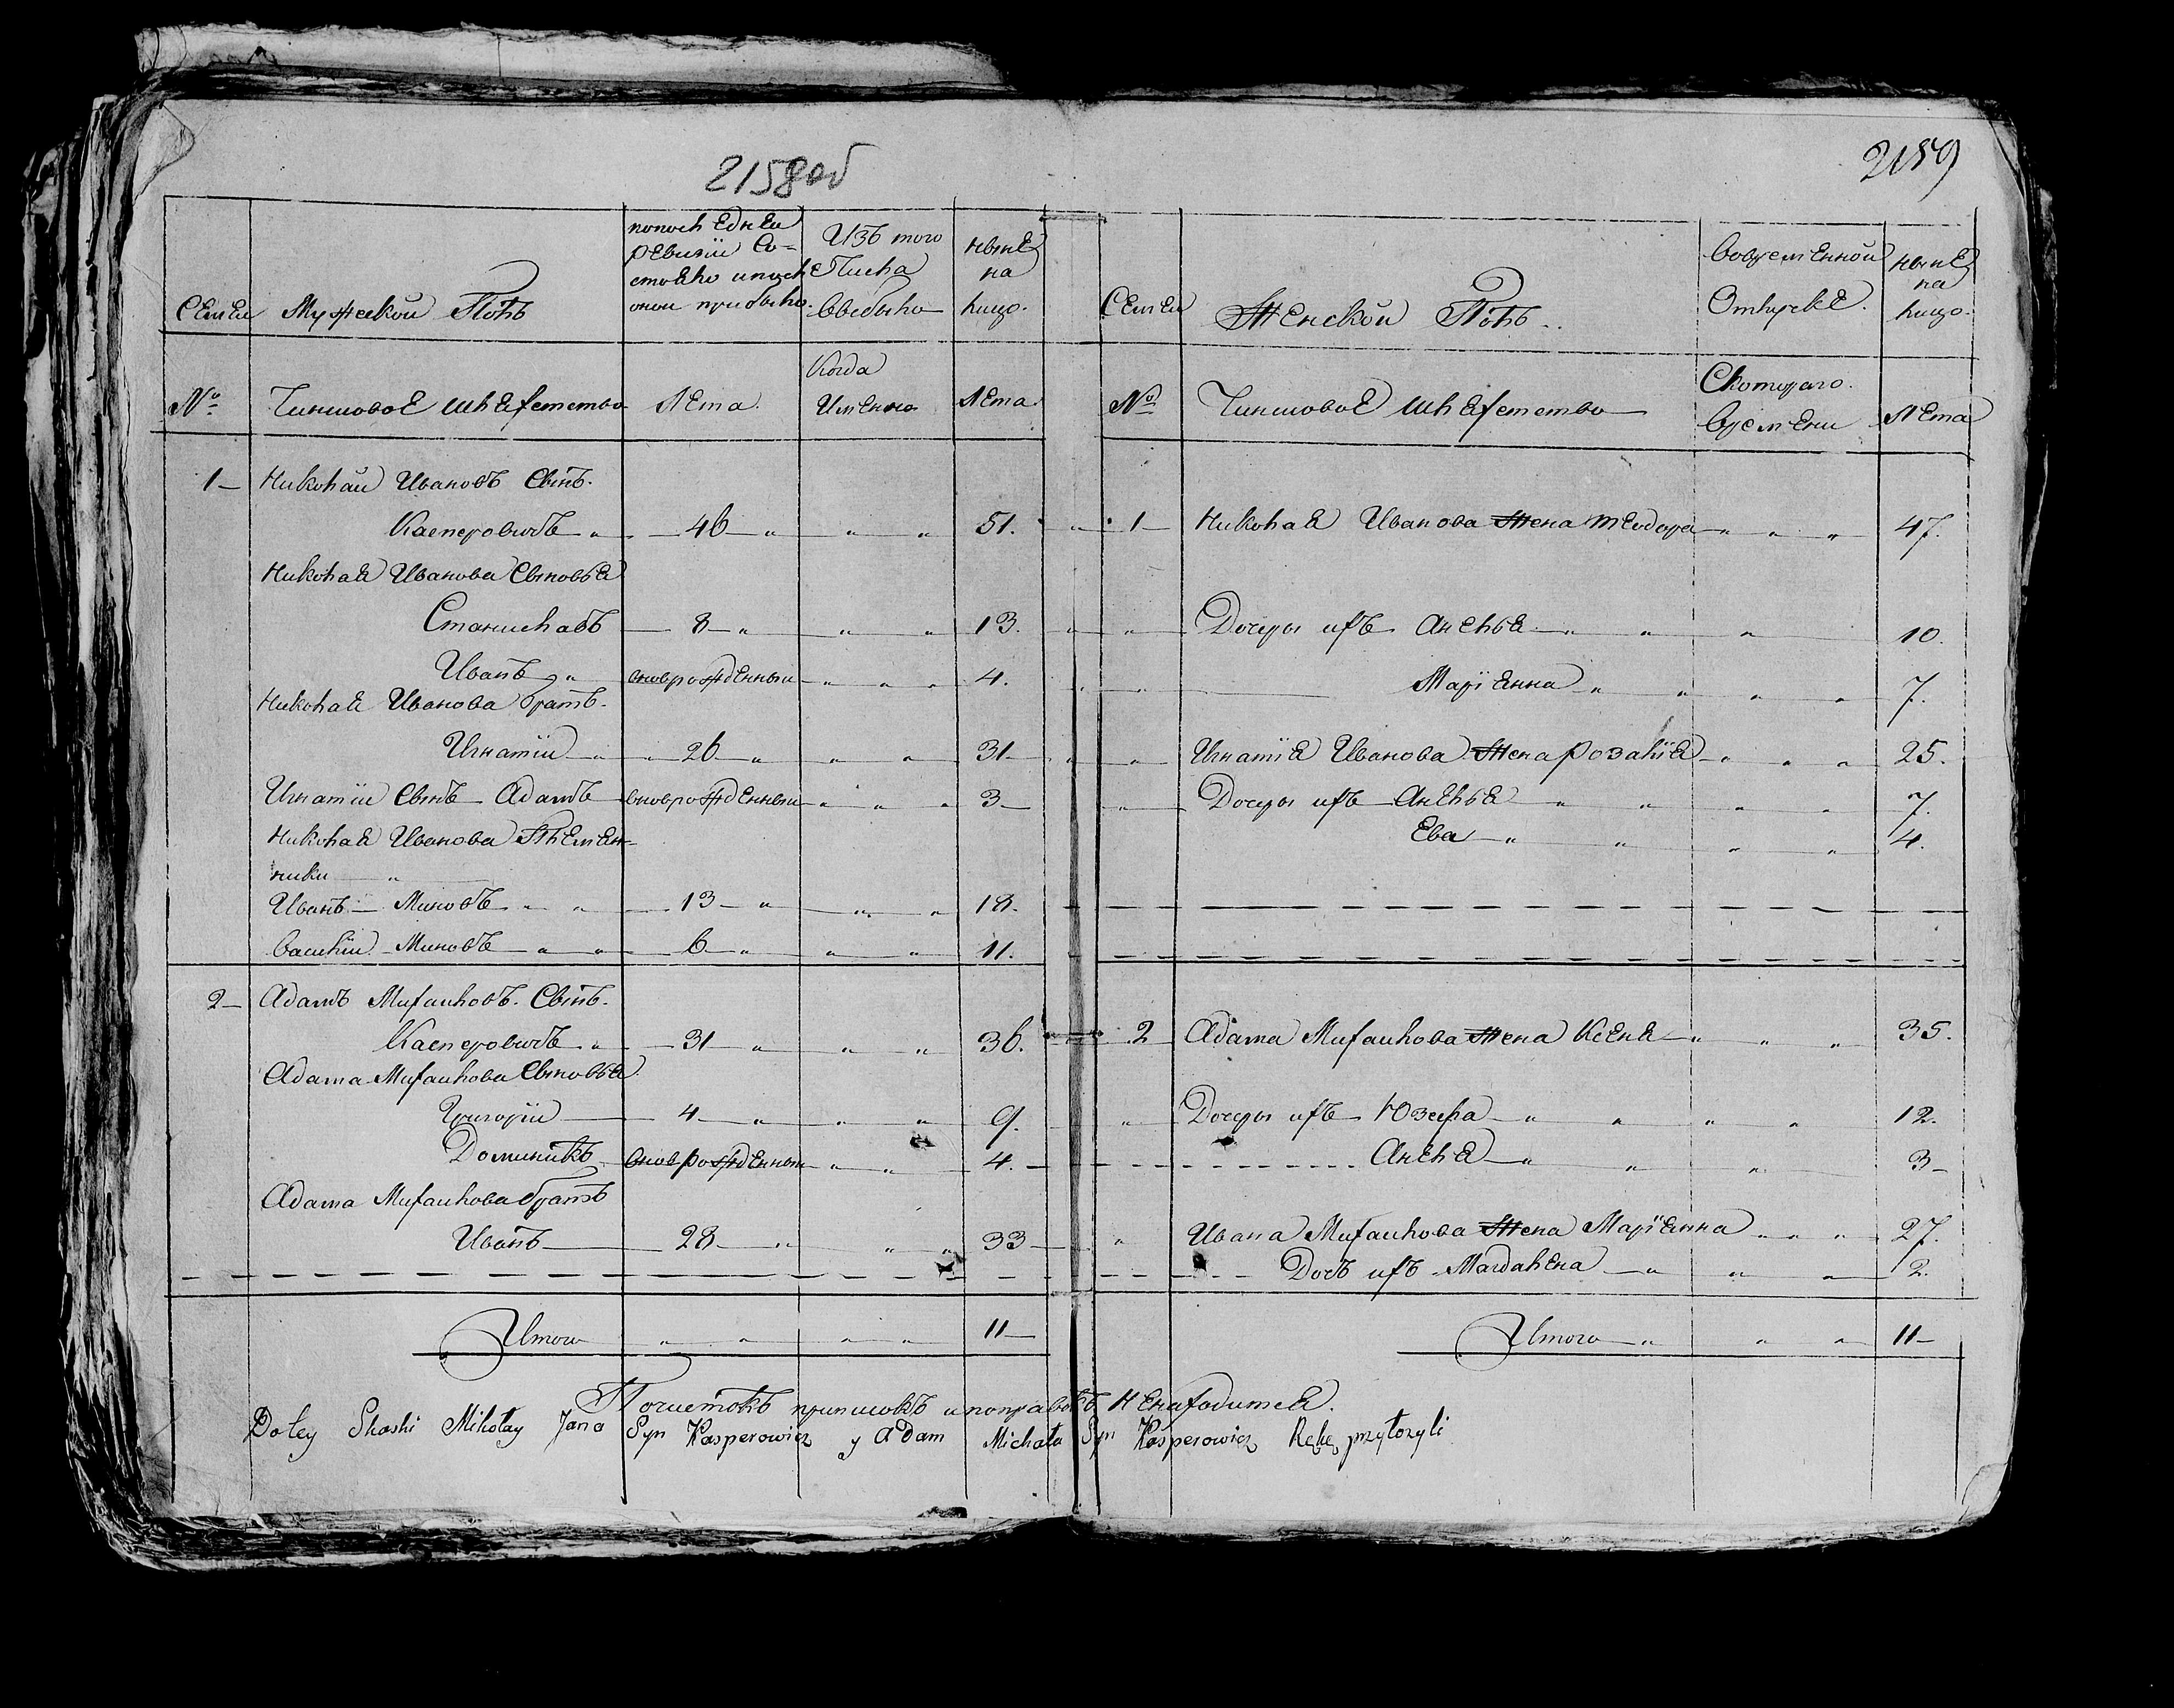 2158 об
2159
Семьи
Мужеской Полъ
попослѣдней
ревизіи Со-
стояло ипослѣ
оной прибыло.
Изъ того
Числа
Выбыло
нынѣ
на
лицо.
№
Чиншовое шляхетство
Лета.
Когда
Именно
Лета.
1 Николай Ивановъ Сынъ.
Касперовичъ 46 51.
Николая Иванова Сыновья
Станиславъ 8 13.
Иванъ вновьрожденный 4.
Николая Иванова братъ.
Игнатій 26 31
Игнатія Сынъ Адамъ вновьрожденный 3
Николая Иванова Племян-
ники
Иванъ Миновъ 13 18.
Василій Миновъ 6 11.
2 Адамъ Михайловъ Сынъ.
Касперовичъ 31 36.
Адама Михайлова Сыновья
Григорій 4 9.
Доминикъ вновьрожденный 4.
Адама Михайлова братъ
Иванъ 28 33
Итого 11
Семьи
Женской Полъ.
Вовременной
Отлучке.
нынѣ
на
лицо.
№
Чиншовое шляхетство
Скотораго.
Времени
Лета
1 Николая Иванова Жена Теодора 47.
Дочеры ихъ Анелья 10.
Маріянна 7.
Игнатія Иванова Жена Розалія 25.
Дочеры ихъ Анелья 7.
Ева 4.
2 Адама Михайлова Жена Ксеня 35.
Дочеры ихъ Юзефа 12.
Анеля 3
Ивана Михайлова Жена Маріянна 27.
Дочь ихъ Магдалена 2.
Итого 11
Почистокъ приписокъ ипоправокъ Ненаходится.
Do tey Skaski Mikołay Jana Syn Kasperowicz y Adam Michała Syn Kasperowicz Rękę przyłożyli